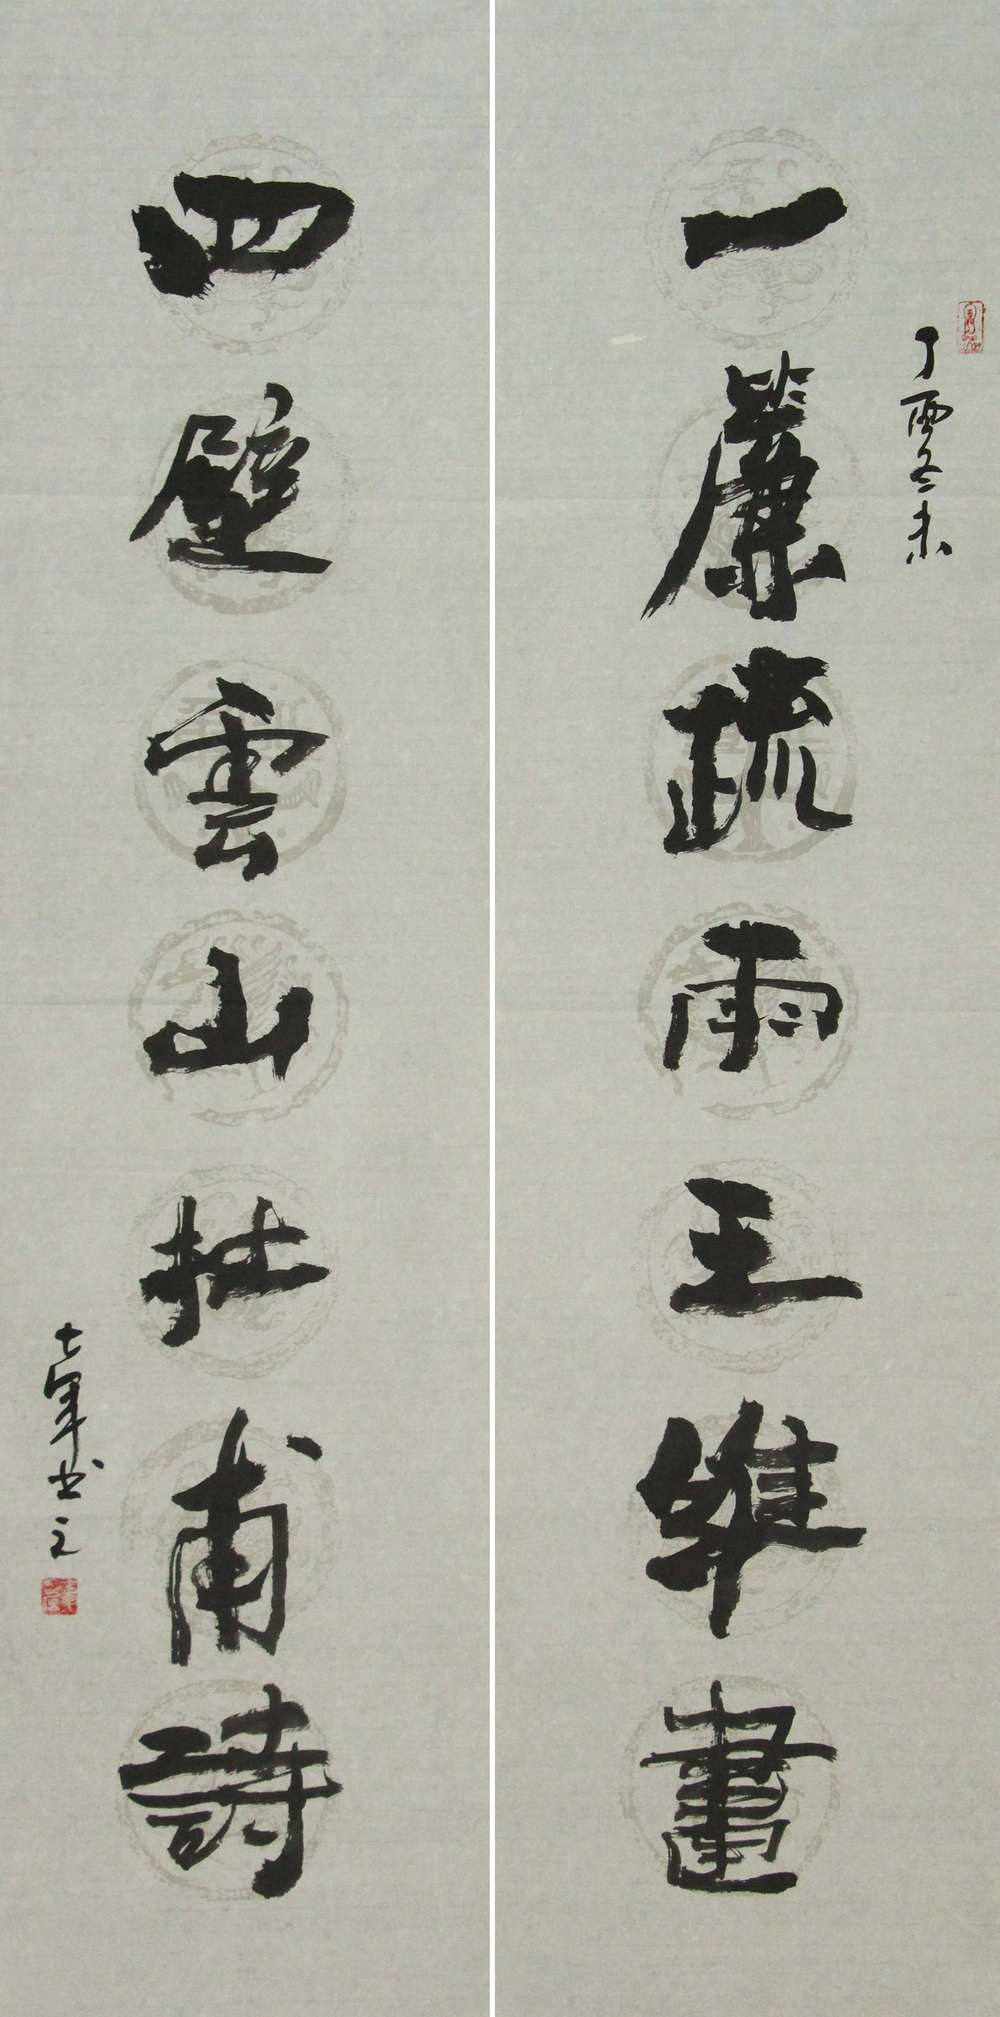 一簾疏雨王維畫
丁酉冬末
四壁雲山杜甫詩
七軍书之